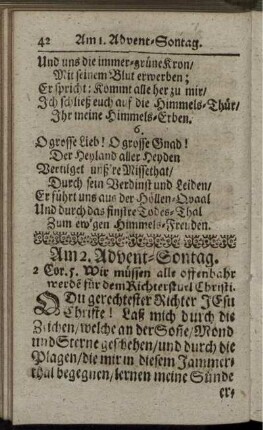 42 Am 1. Advent-Sontag.
Und uns die immer-grüne Kron/
Mit seinem Blut erwerben;
Er spricht: Kommt alle her zu mir/
Ich schließ euch auf die Himmels-Thür/
Ihr meine Himmels-Erben.
6.
O grosse Lieb! O grosse Gnad!
Der Heyland aller Heyden
Vertilget unß're Missethat/
Durch sein Verdinst und Leiden/
Er führt uns aus der Höllen-Qvaal
Und durch das finstre Todes-Thal
Zum ew'gen Himmels-Freuden.
Am 2. Advent-Sontag.
2 Cor. 5. Wir müssen alle offenbahr
werdē für dem Richterstuel Christi.
O Du gerechtester Richter JEsu
Christe! Laß mich durch die
Zeichen/ welche an der Soñe/ Mond
und Sterne geschehen/ und durch die
Plagen/ die mir in diesem Jammer-
thal begegnen/ lernen meine Sünde
er-